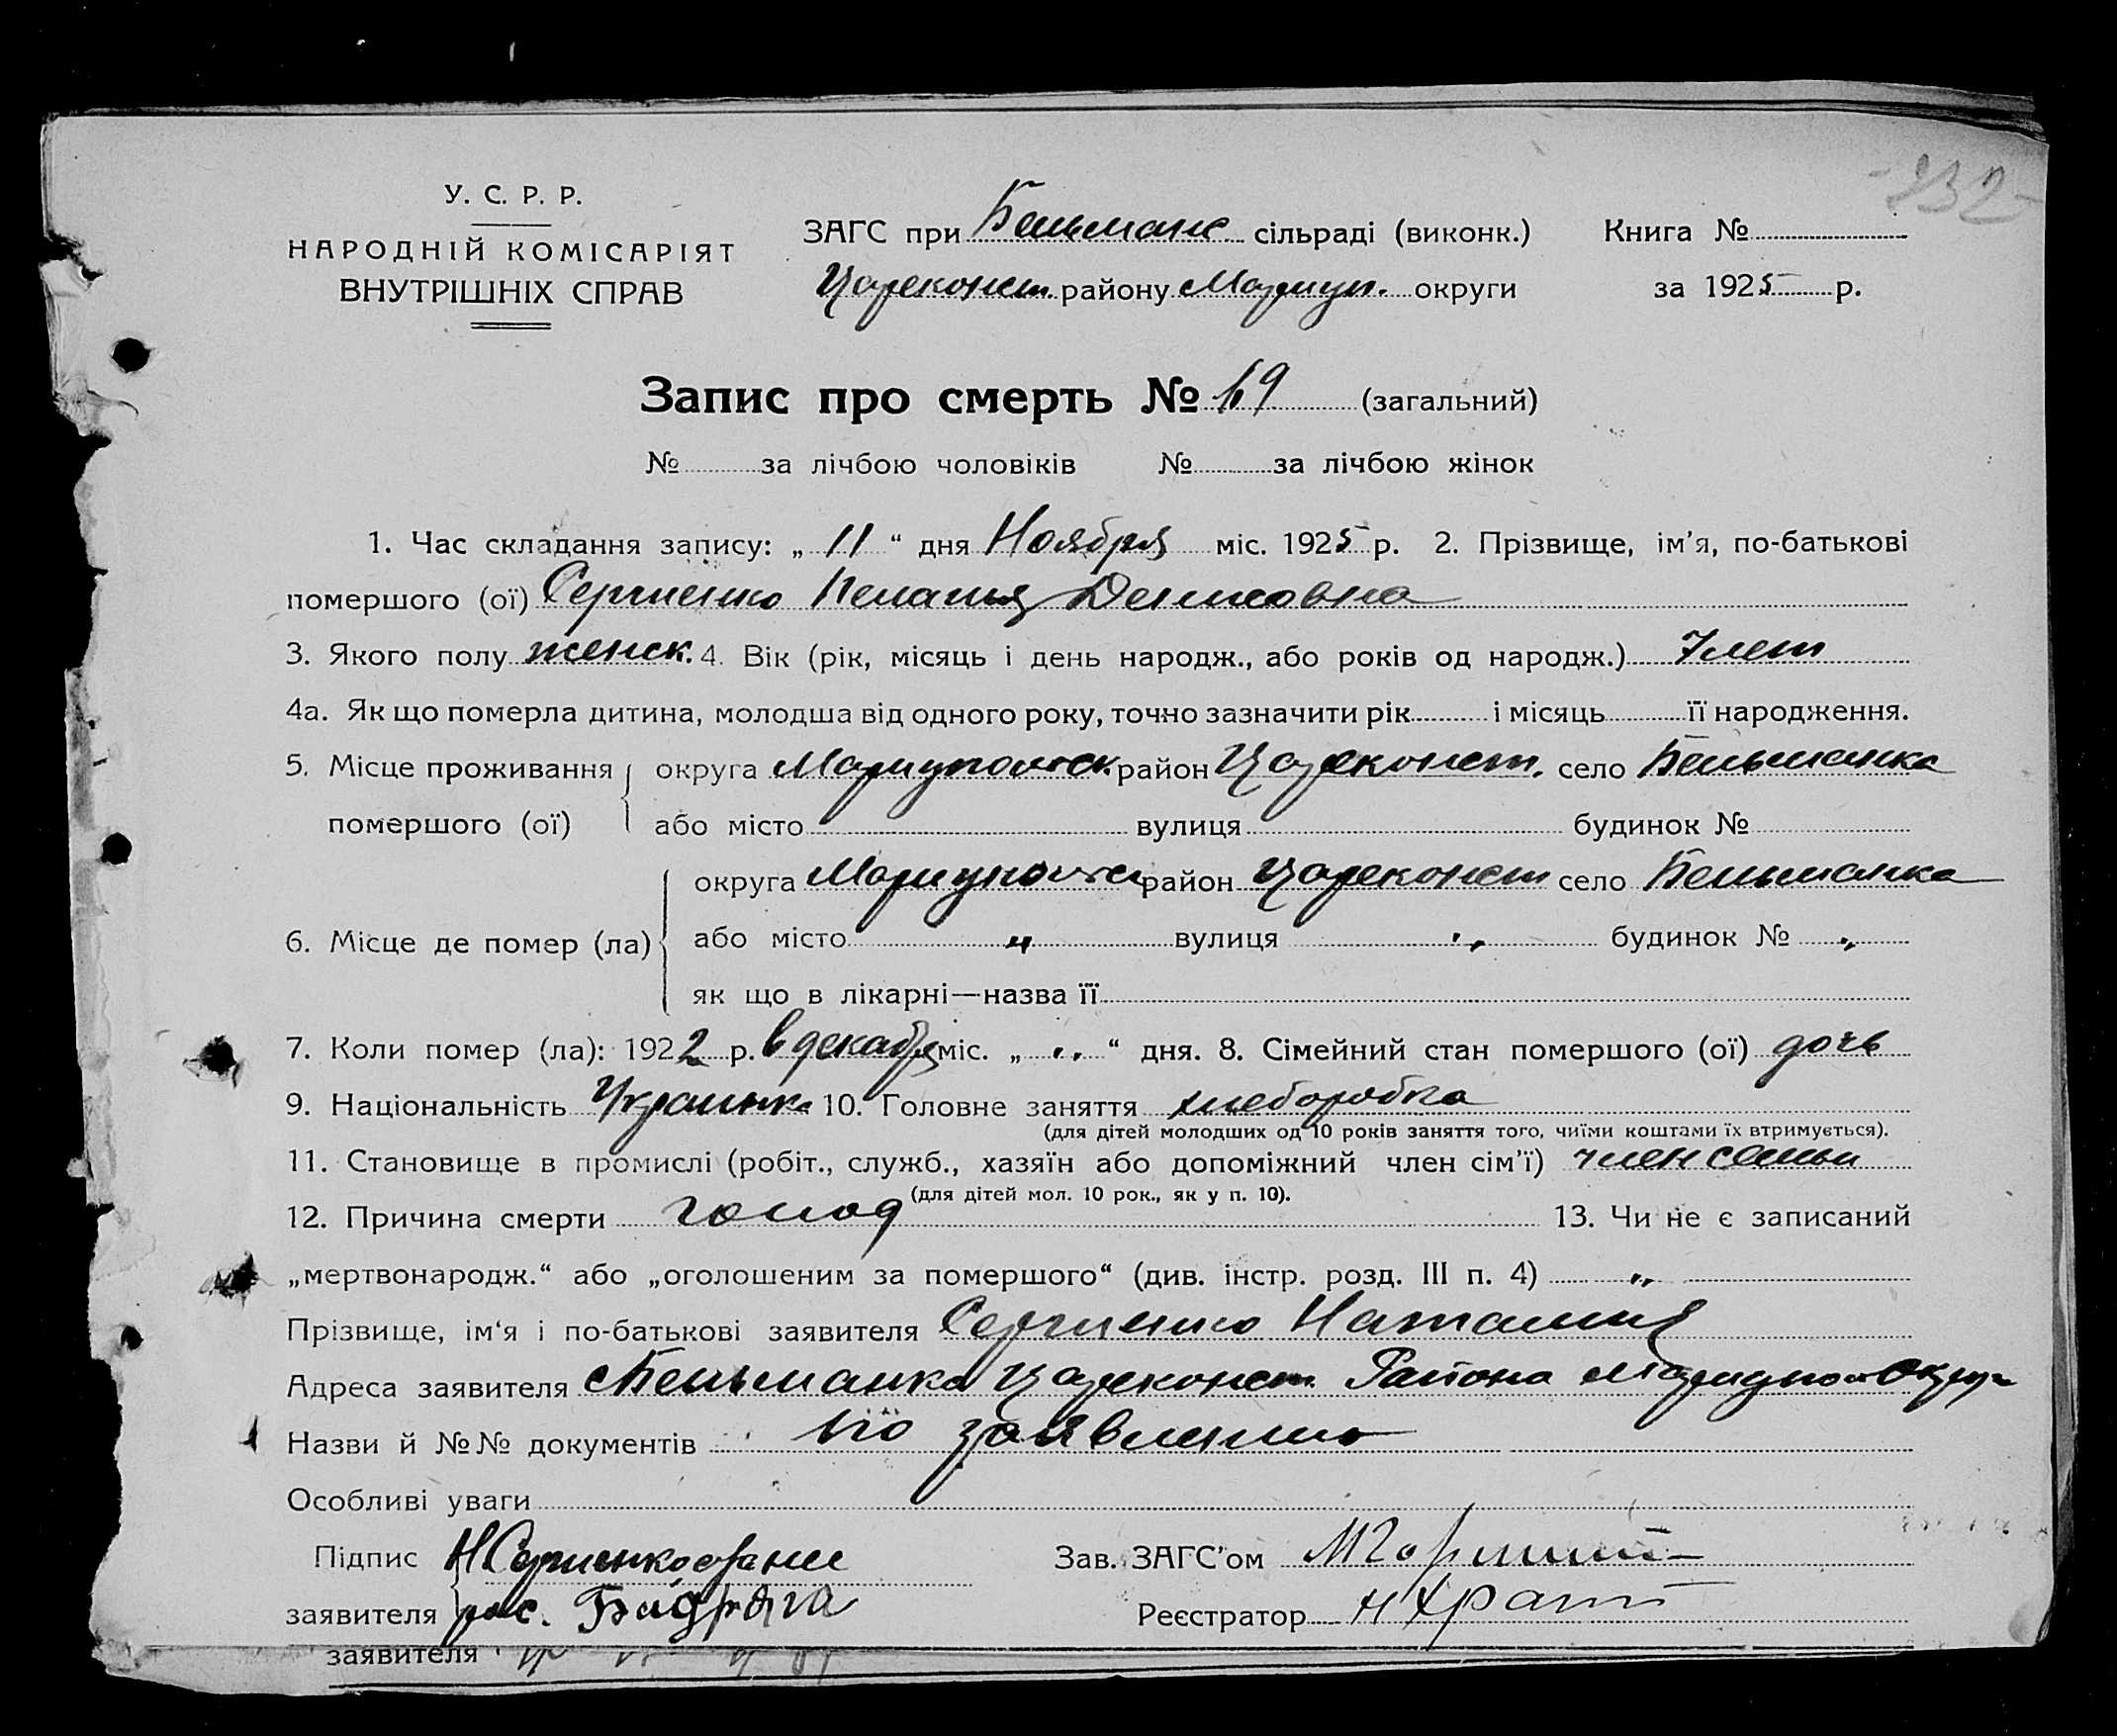 -232-
У. С. Р. Р.
НАРОДНІЙ КОМІСАРІЯТ
ВНУТРІШНІХ СПРАВ
ЗАГС при Бельманс. сільраді (виконк.)
Цареконст. району Мариуп. округи
Книга №
за 1925 р.
Запис про смерть № 69 (загальний)
№ за лічбою чоловіків № за лічбою жінок
1. Час складання запису: „ 11 “ дня Ноября міс. 1925 р. 2. Прізвище, ім’я, по-батькові
помершого (ої) Сергиенко Пелагия Денисовна
3. Якого полу женск. 4. Вік (рік, місяць і день народж., або років од народж.) 7 лет
4а. Як що померла дитина, молодша від одного року, точно зазначити рік і місяць її народження.
5. Місце проживання округа Мариупольск. район Цареконст. село Бельманка
помершого (ої) або місто вулиця будинок №
округа Мариупольск район Цареконст село Бельманка
6. Місце де помер (ла) або місто „ вулиця „ будинок № „
як що в лікарні—назва її
7. Коли помер (ла): 1922 р. в декабря міс. „ „ “ дня. 8. Сімейний стан помершого (ої) дочь
9. Національність Украинка 10. Головне заняття хлеборобка
(для дітей молодших од 10 років заняття того, чиїми коштами їх втримується).
11. Становище в промислі (робіт., служб., хазяїн або допоміжний член сім’ї) член семьи
(для дітей мол. 10 рок., як у п. 10).
12. Причина смерти голод 13. Чи не є записаний
„мертвонародж.“ або „оголошеним за помершого“ (див. інстр. розд. III п. 4) „
Прізвище, ім‘я і по-батькові заявителя Сергиенко Наталия
Адреса заявителя с Бельманка Цареконст. Района Мариупол Округа
Назви й №№ документів по заявлению
Особливі уваги
Підпис Н Сергиенко
заявителя рас.
Зав. ЗАГС’ом
Реєстратор
заявителя